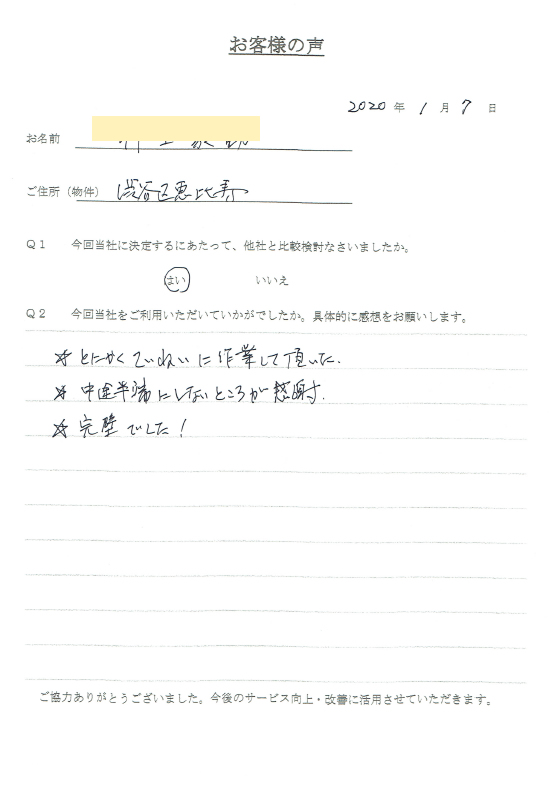 お客様の声
2020 年 1 月 7 日
お名前
ご住所（物件） 渋谷区恵比寿
Q1 今回当社に決定するにあたって、他社と比較検討なさいましたか。
はい いいえ
Q2 今回当社をご利用いただいていかがでしたか。具体的に感想をお願いします。
☆ とにかくていねいに作業して頂いた.
☆ 中途半端にしないところが感謝す.
☆ 完璧でした!
ご協力ありがとうございました。今後のサービス向上・改善に活用させていただきます。